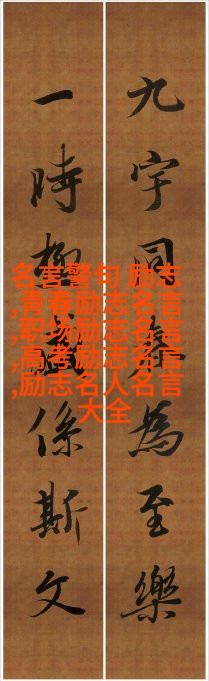 九宇同為至樂
一時極係斯文
名言警句 励志
,青春励志名言
,职场励志名言
,高考励志名言
,励志名人名言
大全